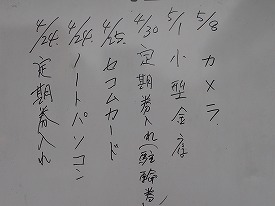 5/8 カメラ
5/1 小型金庫
4/30 定期券入れ(駐輪券)
4/25. セコムカード
4/24. ノートパソコン
4/24. 定期券入れ